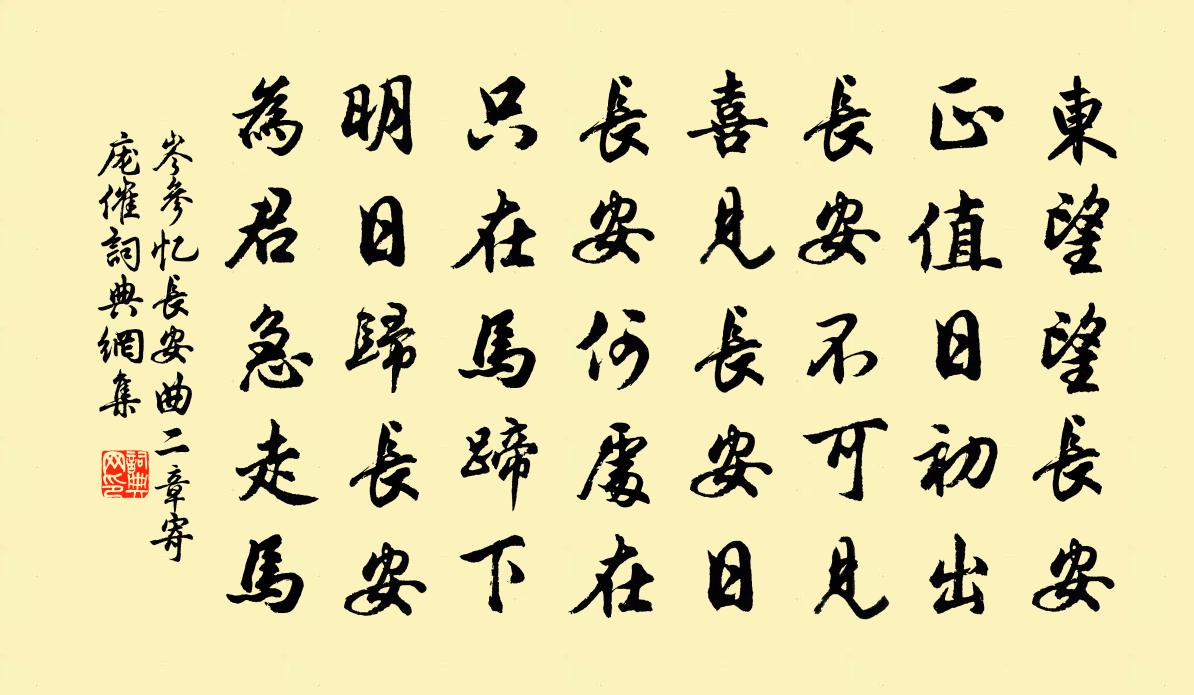 東望望長安
正值日初出
長安不可見
喜見長安日
長安何處在
只在馬蹄下
明日歸長安
為君急走馬
岑參忆長安曲二章寄
庞催詞典網集
詞典
网印